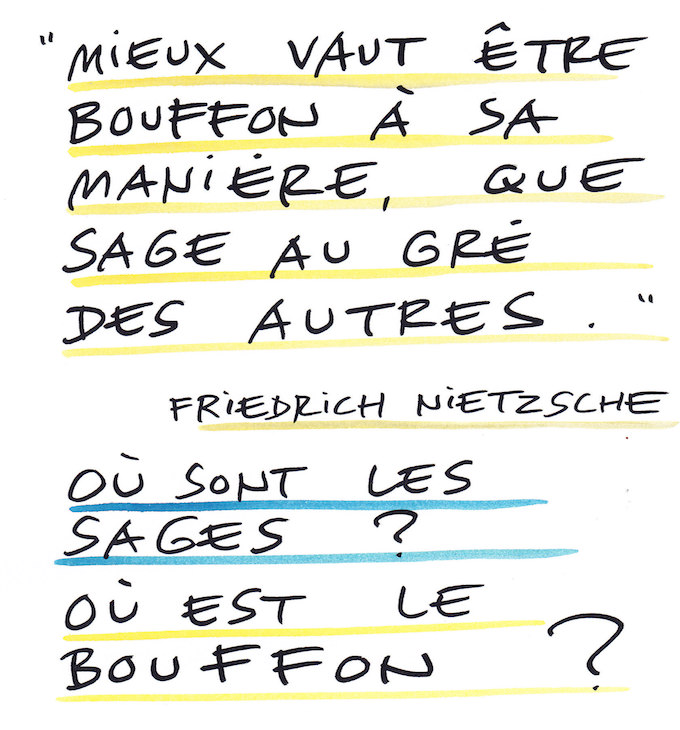 "MIEUX VAUT ÊTRE
BOUFFON À SA
MANIÈRE, QUE
SAGE AU GRÉ
DES AUTRES."
FRIEDRICH NIETZSCHE
OÙ SONT LES
SAGES ?
OÙ EST LE
BOUFFON ?